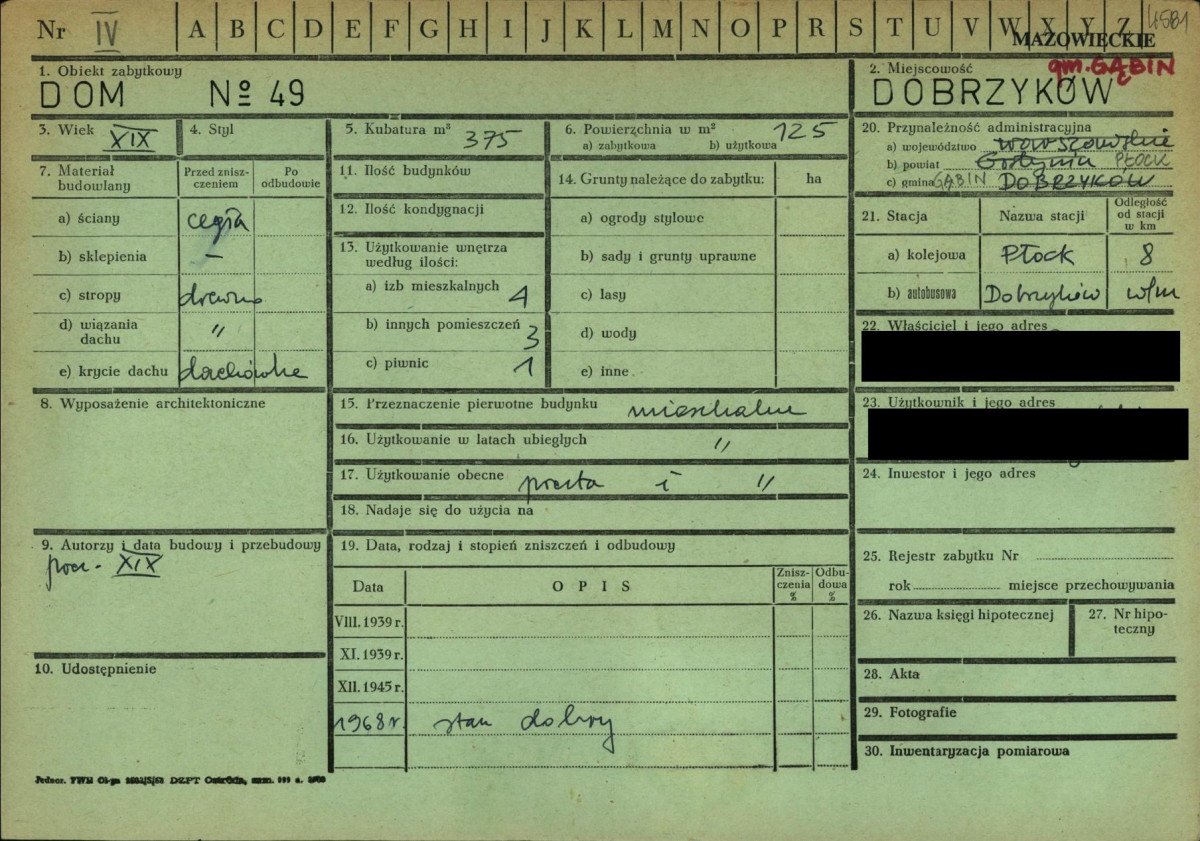 Nr IV A B C D E F G H I J K L M N O P R S T U V W X Y Z 4581
MAZOWIECKIE
1. Obiekt zabytkowy
DOM № 49
2. Miejscowość gm. GĄBIN
DOBRZYKÓW
3. Wiek XIX
4. Styl
5. Kubatura m³ 375
6. Powierzchnia w m² 125
a) zabytkowa b) użytkowa
20. Przynależność administracyjna
a) województwo warszawskie
b) powiat Gostynin PŁOCK
c) gmina GĄBIN DOBRZYKÓW
7. Materiał budowlany
Przed znisz-
czeniem
Po
odbudowie
a) ściany cegła
b) sklepienia –
c) stropy drewno
d) wiązania
dachu "
e) krycie dachu dachówka
11. Ilość budynków
12. Ilość kondygnacji
13. Użytkowanie wnętrza
według ilości:
a) izb mieszkalnych 4
b) innych pomieszczeń 3
c) piwnic 1
14. Grunty należące do zabytku: ha
a) ogrody stylowe
b) sady i grunty uprawne
c) lasy
d) wody
e) inne
21. Stacja Nazwa stacji Odległość
od stacji
w km
a) kolejowa Płock 8
b) autobusowa Dobrzyków w/m
22. Właściciel i jego adres
23. Użytkownik i jego adres
24. Inwestor i jego adres
8. Wyposażenie architektoniczne
15. Przeznaczenie pierwotne budynku mieszkalne
16. Użytkowanie w latach ubiegłych "
17. Użytkowanie obecne poczta i "
18. Nadaje się do użycia na
9. Autorzy i data budowy i przebudowy
pocz. XIX
10. Udostępnienie
19. Data, rodzaj i stopień zniszczeń i odbudowy
Data OPIS Znisz-
czenia
%
Odbu-
dowa
%
VIII. 1939 r.
XI. 1939 r.
XII. 1945 r.
1968 r. stan dobry
25. Rejestr zabytku Nr
rok miejsce przechowywania
26. Nazwa księgi hipotecznej
27. Nr hipo-
teczny
28. Akta
29. Fotografie
30. Inwentaryzacja pomiarowa